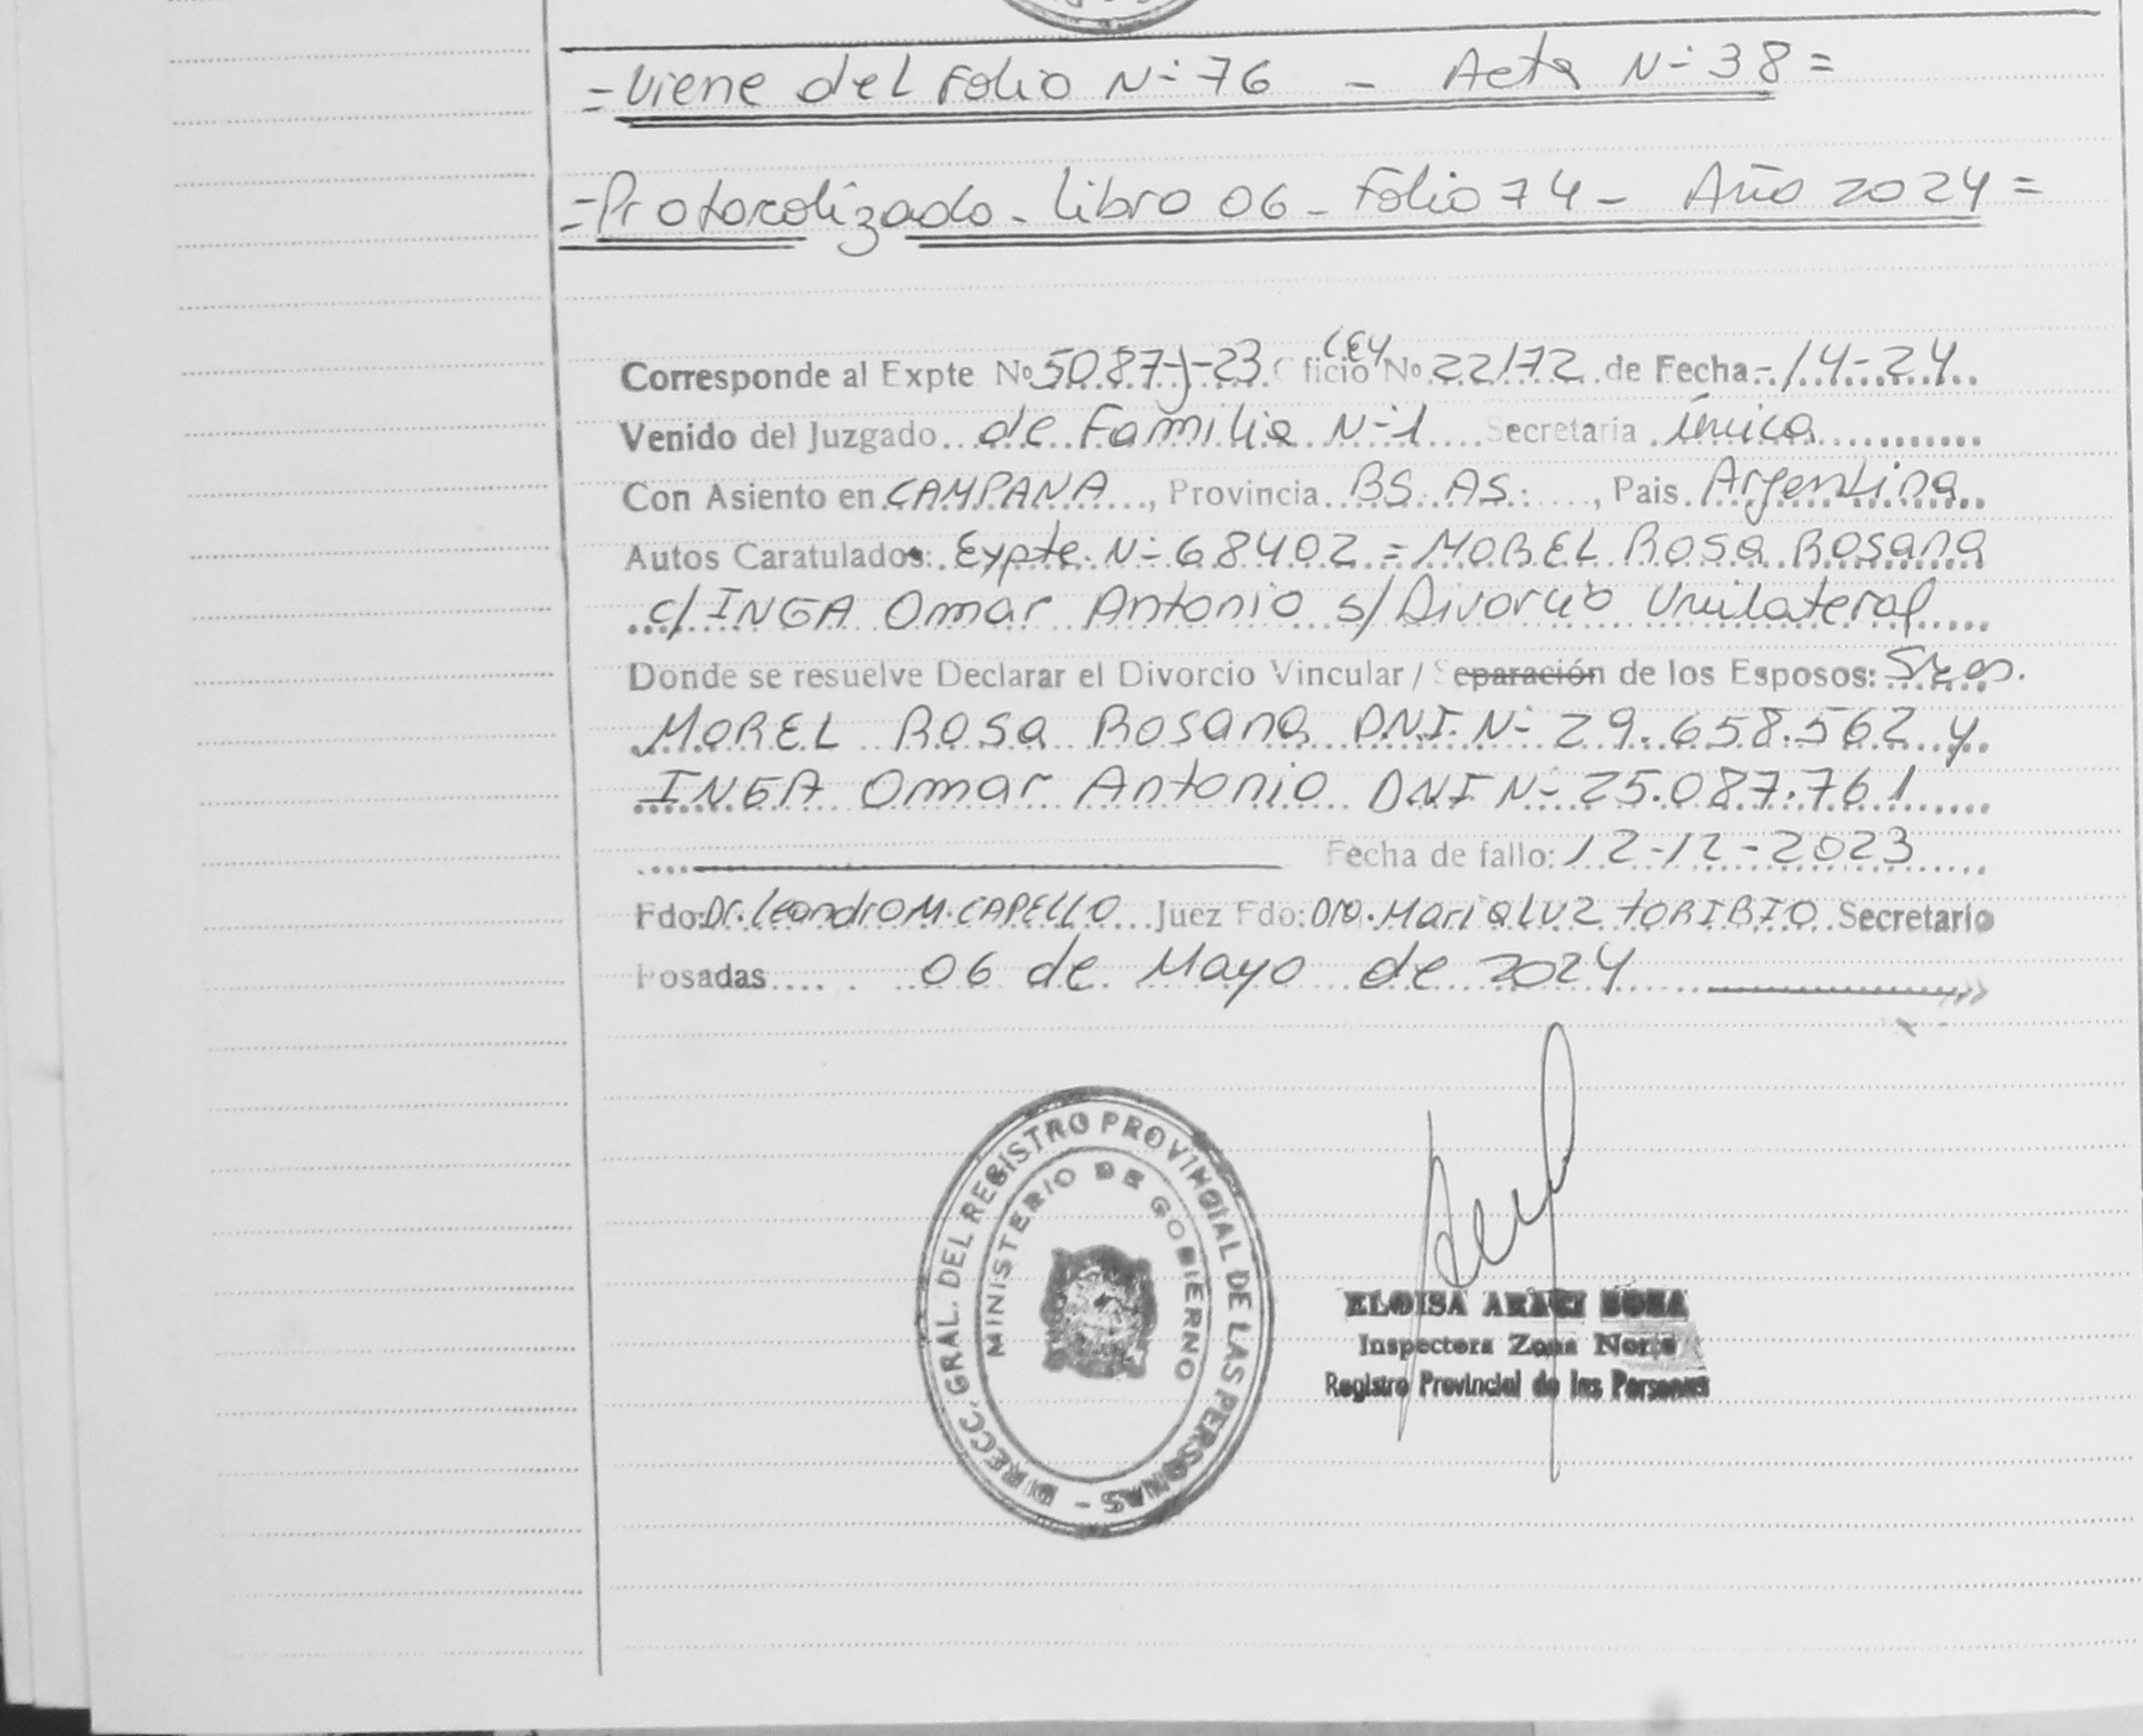 =Viene del Folio N-76 - Acta N-38=
=Protocolizado - Libro 06 - Folio 74 - Año 2024=
Corresponde al Expte Nº 5087-J-23 Oficio LEY Nº 22172 de Fecha - 14-24
Venido del Juzgado de Familia N-1 Secretaría Única
Con Asiento en CAMPANA, Provincia BS. AS., Pais Argentina
Autos Caratulados: Expte N- 68402 = MOREL Rosa Rosana
c/ INGA Omar Antonio s/ Divorcio Unilateral
Donde se resuelve Declarar el Divorcio Vincular / Separación de los Esposos: Sres.
MOREL Rosa Rosana DNI N- 29.658.562 y
INGA Omar Antonio DNI N- 25.087.761
Fecha de fallo: 12-12-2023
Fdo: Dr. Leandro M. CAPELLO Juez Fdo: Dra. Maria LUZ TORIBIO Secretario
Posadas 06 de Mayo de 2024
DIRECC. GRAL. DEL REGISTRO PROVINCIAL DE LAS PERSONAS -
MINISTERIO DE GOBIERNO
ELOISA ARAKI SOSA
Inspectora Zona Norte
Registro Provincial de las Personas